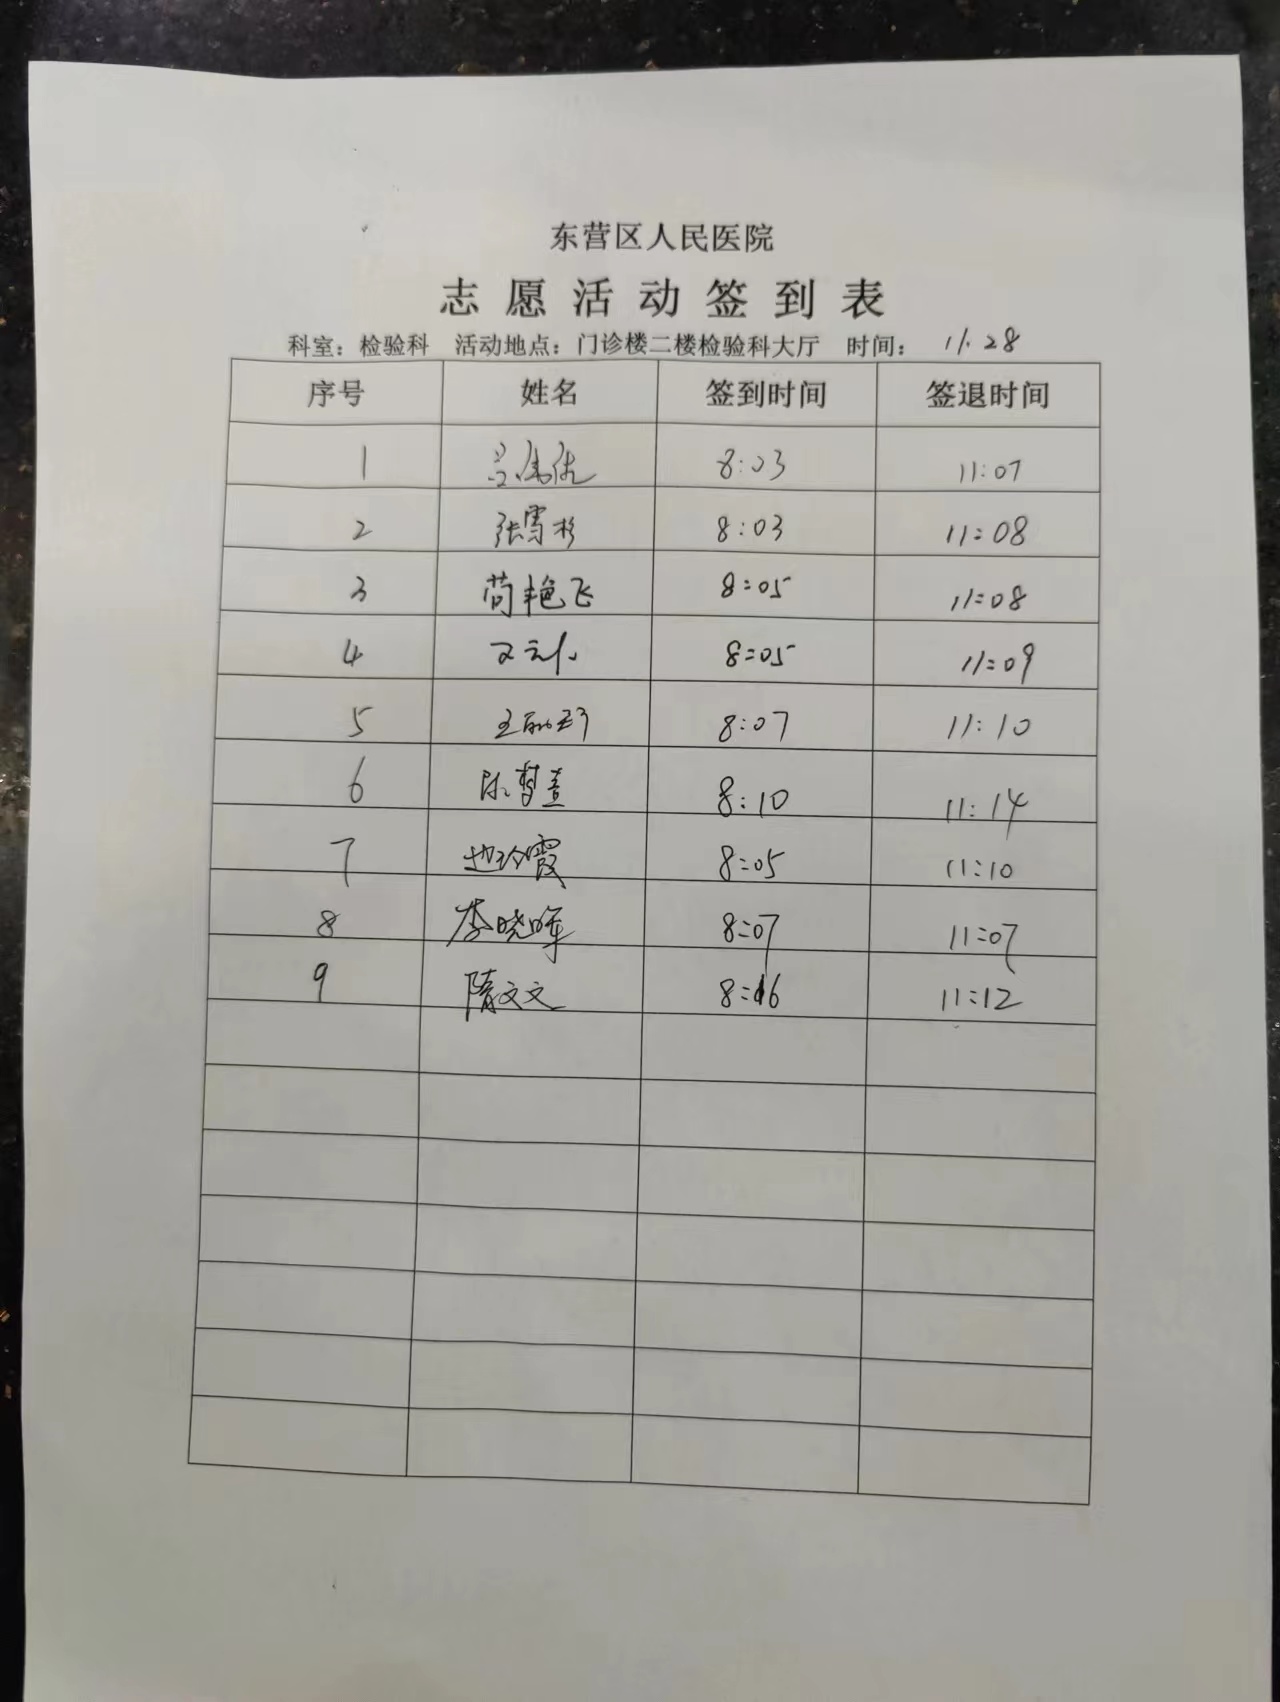 东营区人民医院
志愿活动签到表
科室：检验科 活动地点：门诊楼二楼检验科大厅 时间： 11.28
序号 姓名 签到时间 签退时间
1 8:03 11:07
2 张雪杉 8:03 11:08
3 苟艳飞 8:05 11:08
4 8:05 11:09
5 王 8:07 11:10
6 陈梦 8:10 11:14
7 赵玲霞 8:05 11:10
8 李晓晖 8:07 11:07
9 隋文文 8:16 11:12